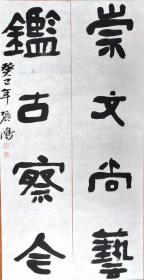 崇文尚藝
鑑古察今
癸巳年